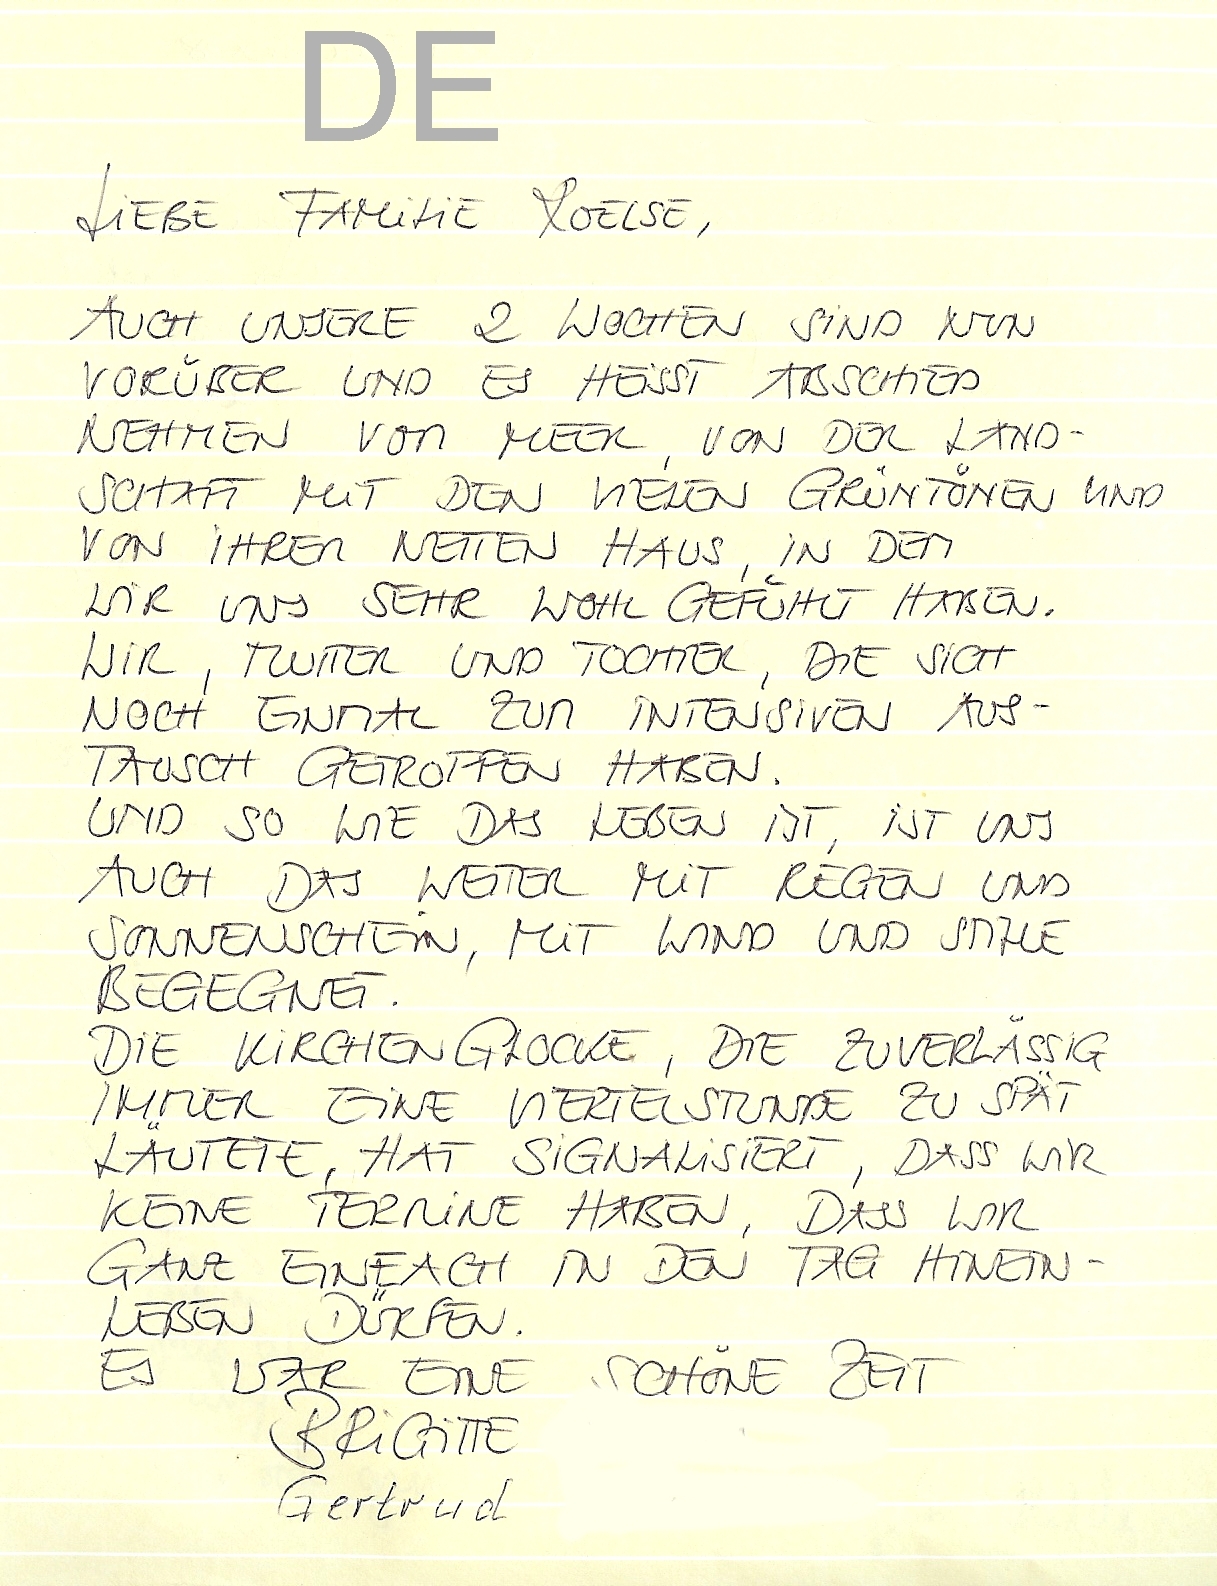 DE
LIEBE FAMILIE ROELSE,
AUCH UNSERE 2 WOCHEN SIND NUN
VORÜBER UND ES HEISST ABSCHIED
NEHMEN VOM MEER, VON DER LAND-
SCHAFT MIT DEN VIELEN GRÜNTÖNEN UND
VON IHREM NETTEN HAUS, IN DEM
WIR UNS SEHR WOHL GEFÜHLT HABEN.
WIR, MUTTER UND TOCHTER, DIE SICH
NOCH EINMAL ZUM INTENSIVEN AUS-
TAUSCH GETROFFEN HABEN.
UND SO WIE DAS LEBEN IST, IST UNS
AUCH DAS WETTER MIT REGEN UND
SONNENSCHEIN, MIT WIND UND STILLE
BEGEGNET.
DIE KIRCHENGLOCKE, DIE ZUVERLÄSSIG
IMMER EINE VIERTELSTUNDE ZU SPÄT
LÄUTETE, HAT SIGNALISIERT, DASS WIR
KEINE TERMINE HABEN, DASS WIR
GANZ EINFACH IN DEN TAG HINEIN-
LEBEN DÜRFEN.
ES WAR EINE SCHÖNE ZEIT
BRIGITTE
Gertrud